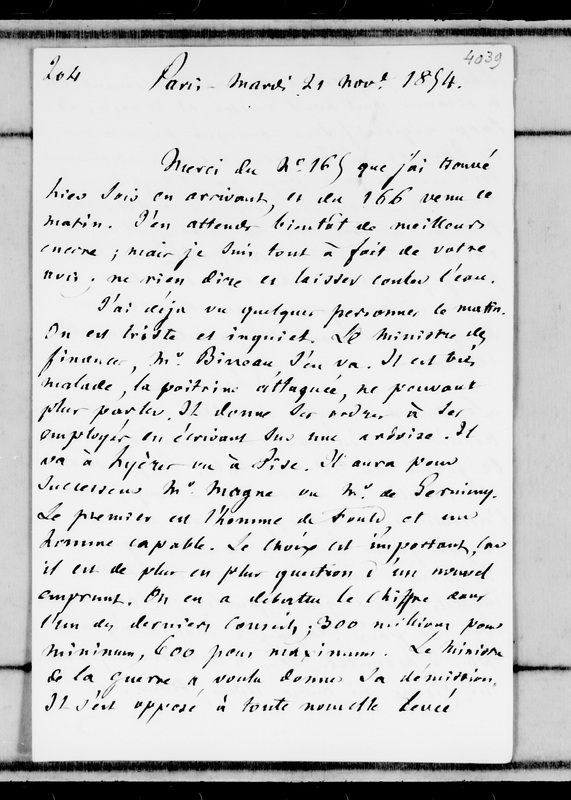 204
4039
Paris - Mardi 21 Nov.^e 1854.
Merci du N° 165 que j'ai trouvé
hier soir en arrivant, et du 166 venu ce
matin. J'en attends bientôt de meilleurs
encore ; mais je suis tout à fait de votre
avis ; ne rien dire et laisser couler l'eau.
J'ai déjà vu quelques personnes ce matin.
On est triste et inquiet. Le ministre des
finances, Mr. Bineau s'en va. Il est très
malade, la poitrine attaquée, ne pouvant
plus parler. Il donne ses ordres à ses
employés en écrivant sur une ardoise. Il
va à Hyères ou à Pise. Il aura pour
successeur Mr. Magne ou Mr. de Germiny.
Le premier est l'homme de Fould, et un
homme capable. Le choix est important, car
il est de plus en plus question d'un nouvel
emprunt. On en a débattu le chiffre dans
l'un des derniers conseils ; 300 millions pour
minimum, 600 pour maximum. Le ministre
de la guerre a voulu donner sa démission.
Il s'est opposé à toute nouvelle levée